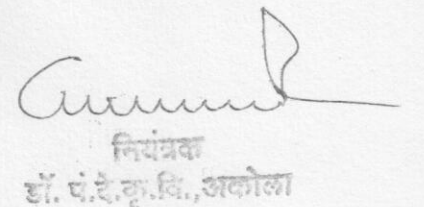 नियंत्रक
डॉ. पं.दे.कृ.वि.,अकोला